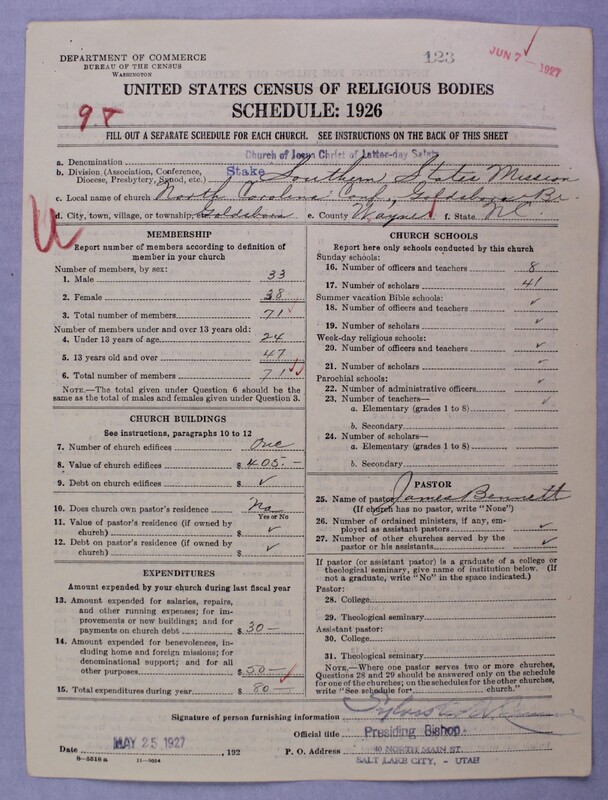 DEPARTMENT OF COMMERCE
BUREAU OF THE CENSUS
WASHINGTON
123
JUN 7 - 1927
UNITED STATES CENSUS OF RELIGIOUS BODIES
SCHEDULE: 1926
FILL OUT A SEPARATE SCHEDULE FOR EACH CHURCH. SEE INSTRUCTIONS ON THE BACK OF THIS SHEET
a. Denomination Church of Jesus Christ of Latter-day Saints
b. Division (Association, Conference, Diocese, Presbytery, Synod, etc.) Stake Southern States Mission
c. Local name of church North Carolina Conf., Goldsboro Br.
d. City, town, village, or township, Goldsboro e. County Wayne f. State N.C.
MEMBERSHIP
Report number of members according to definition of
member in your church
Number of members, by sex:
1. Male 33
2. Female 38
3. Total number of members 71
Number of members under and over 13 years old:
4. Under 13 years of age 24
5. 13 years old and over 47
6. Total number of members 71
NOTE.—The total given under Question 6 should be
the same as the total of males and females given under Question 3.
CHURCH BUILDINGS
See instructions, paragraphs 10 to 12
7. Number of church edifices One
8. Value of church edifices $ 405.—
9. Debt on church edifices $ ✓
10. Does church own pastor's residence No
Yes or No
11. Value of pastor's residence (if owned by
church) $ ✓
12. Debt on pastor's residence (if owned by
church) $ ✓
EXPENDITURES
Amount expended by your church during last fiscal year
13. Amount expended for salaries, repairs,
and other running expenses; for im-
provements or new buildings; and for
payments on church debt $ 30—
14. Amount expended for benevolences, in-
cluding home and foreign missions; for
denominational support; and for all
other purposes $ 50—
15. Total expenditures during year $ 80—
CHURCH SCHOOLS
Report here only schools conducted by this church
Sunday schools:
16. Number of officers and teachers 8
17. Number of scholars 41
Summer vacation Bible schools:
18. Number of officers and teachers ✓
19. Number of scholars ✓
Week-day religious schools:
20. Number of officers and teachers ✓
21. Number of scholars ✓
Parochial schools:
22. Number of administrative officers ✓
23. Number of teachers— ✓
a. Elementary (grades 1 to 8)
b. Secondary
24. Number of scholars—
a. Elementary (grades 1 to 8)
b. Secondary
PASTOR
25. Name of pastor James Bennett
(If church has no pastor, write "None")
26. Number of ordained ministers, if any, em-
ployed as assistant pastors ✓
27. Number of other churches served by the
pastor or his assistants ✓
If pastor (or assistant pastor) is a graduate of a college or
theological seminary, give name of institution below. (If
not a graduate, write "No" in the space indicated.)
Pastor:
28. College
29. Theological seminary
Assistant pastor:
30. College
31. Theological seminary
NOTE.—Where one pastor serves two or more churches,
Questions 28 and 29 should be answered only on the schedule
for one of the churches; on the schedules for the other churches,
write "See schedule for church."
Signature of person furnishing information
Official title Presiding Bishop
Date MAY 25 1927, 192 P. O. Address 40 NORTH MAIN ST.
SALT LAKE CITY, - UTAH
8-5518 a 11-9034